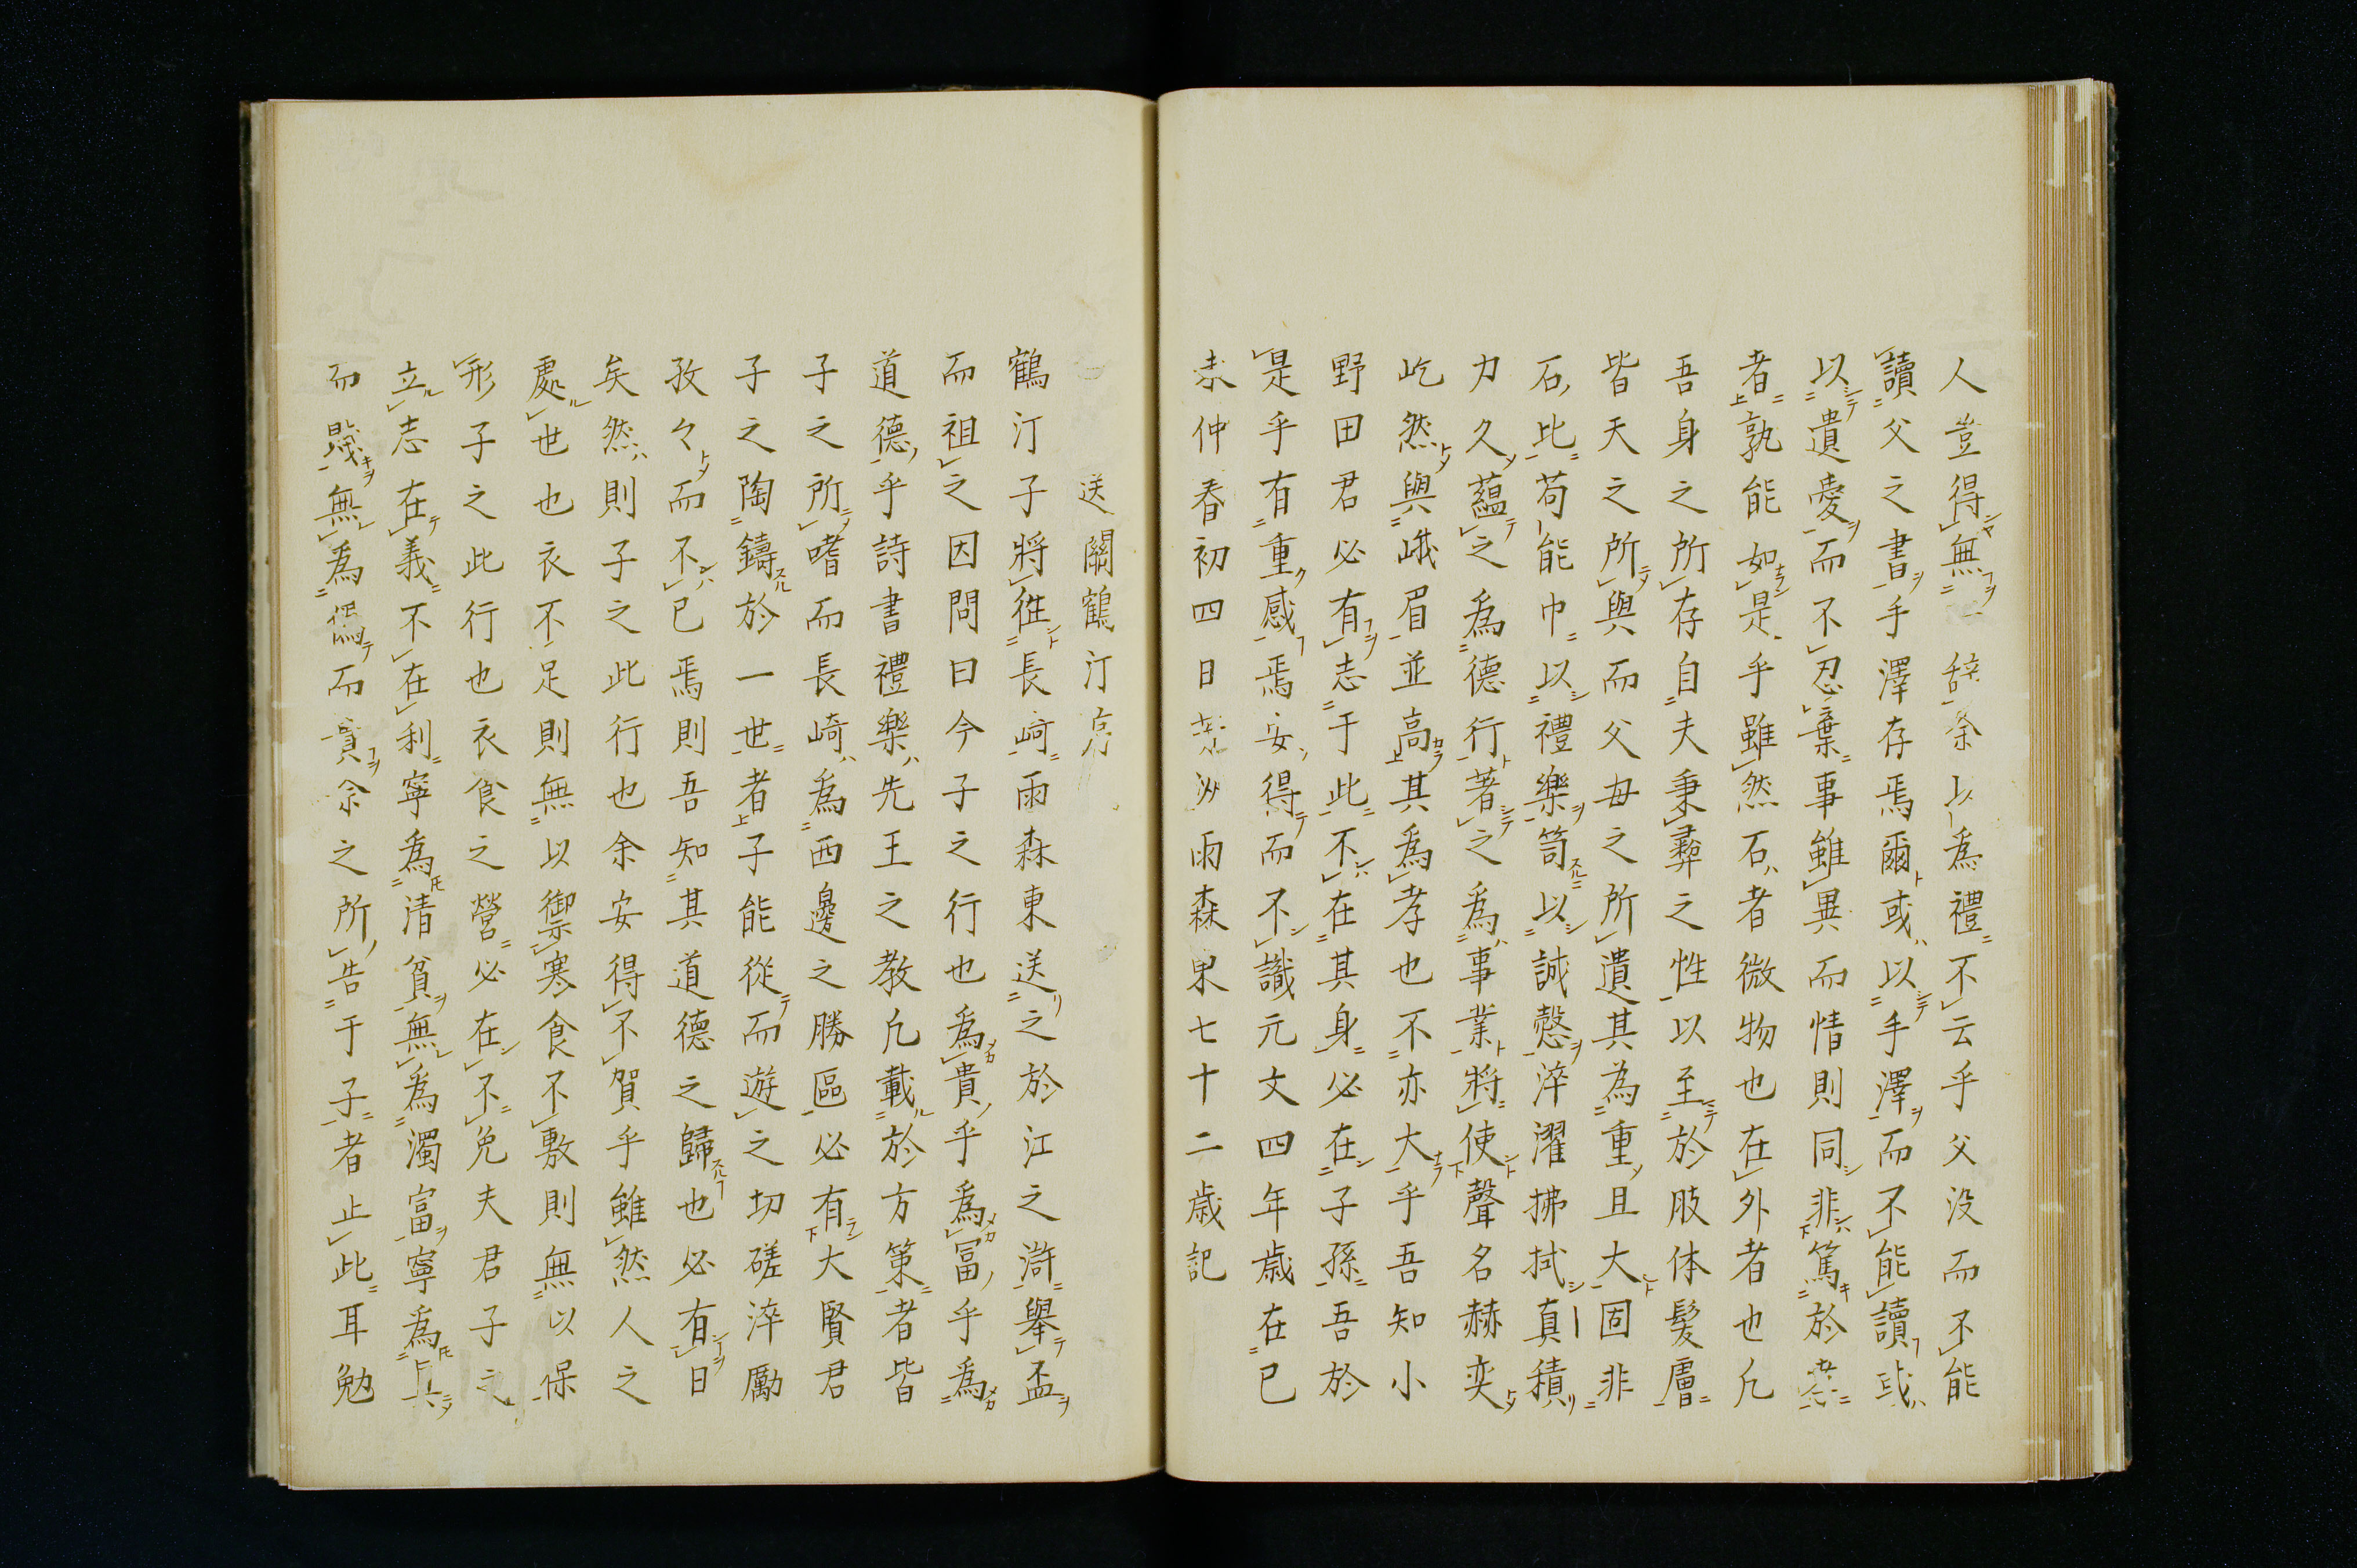 人豈得無一辞余以為禮不云乎父没而不能
讀父之書手澤存焉爾或以手澤而不能讀或
以遺愛而不忍棄事雖異而情則同非篤於
者孰能如是乎雖然石者微物也在外者也凢
吾身之所存自夫秉彝之性以至於肢体髪膚
皆天之所與而父毋之所遺其為重且大固非
石比苟能巾以禮樂笥以誠愨淬濯拂拭真積
力久蘊之為德行著之為事業將使聲名赫奕
屹然與峨眉並高其為孝也不亦大乎吾知小
野田君必有志于此不在其身必在子孫吾於
是乎有重感焉安得而不識元文四年歳在己
未仲春初四日芳洲雨森東七十二歳記
送關鶴汀序
鶴汀子將徃長崎雨森東送之於江之滸舉盃
而祖之因問曰今子之行也為貴乎為冨乎為
道德乎詩書禮樂先王之教凢載於方策者皆
子之所嗜而長崎為西邊之勝區必有大賢君
子之陶鑄於一世者子能從而遊之切磋淬勵
孜々而不已焉則吾知其道德之歸也必有日
矣然則子之此行也余安得不賀乎雖然人之
處世也衣不足則無以禦寒食不敷則無以保
形子之此行也衣食之營必在不免夫君子之
立志在義不在利寧為清貧無為濁富寧為真
而賤無為僞而貴余之所告于子者止此耳勉